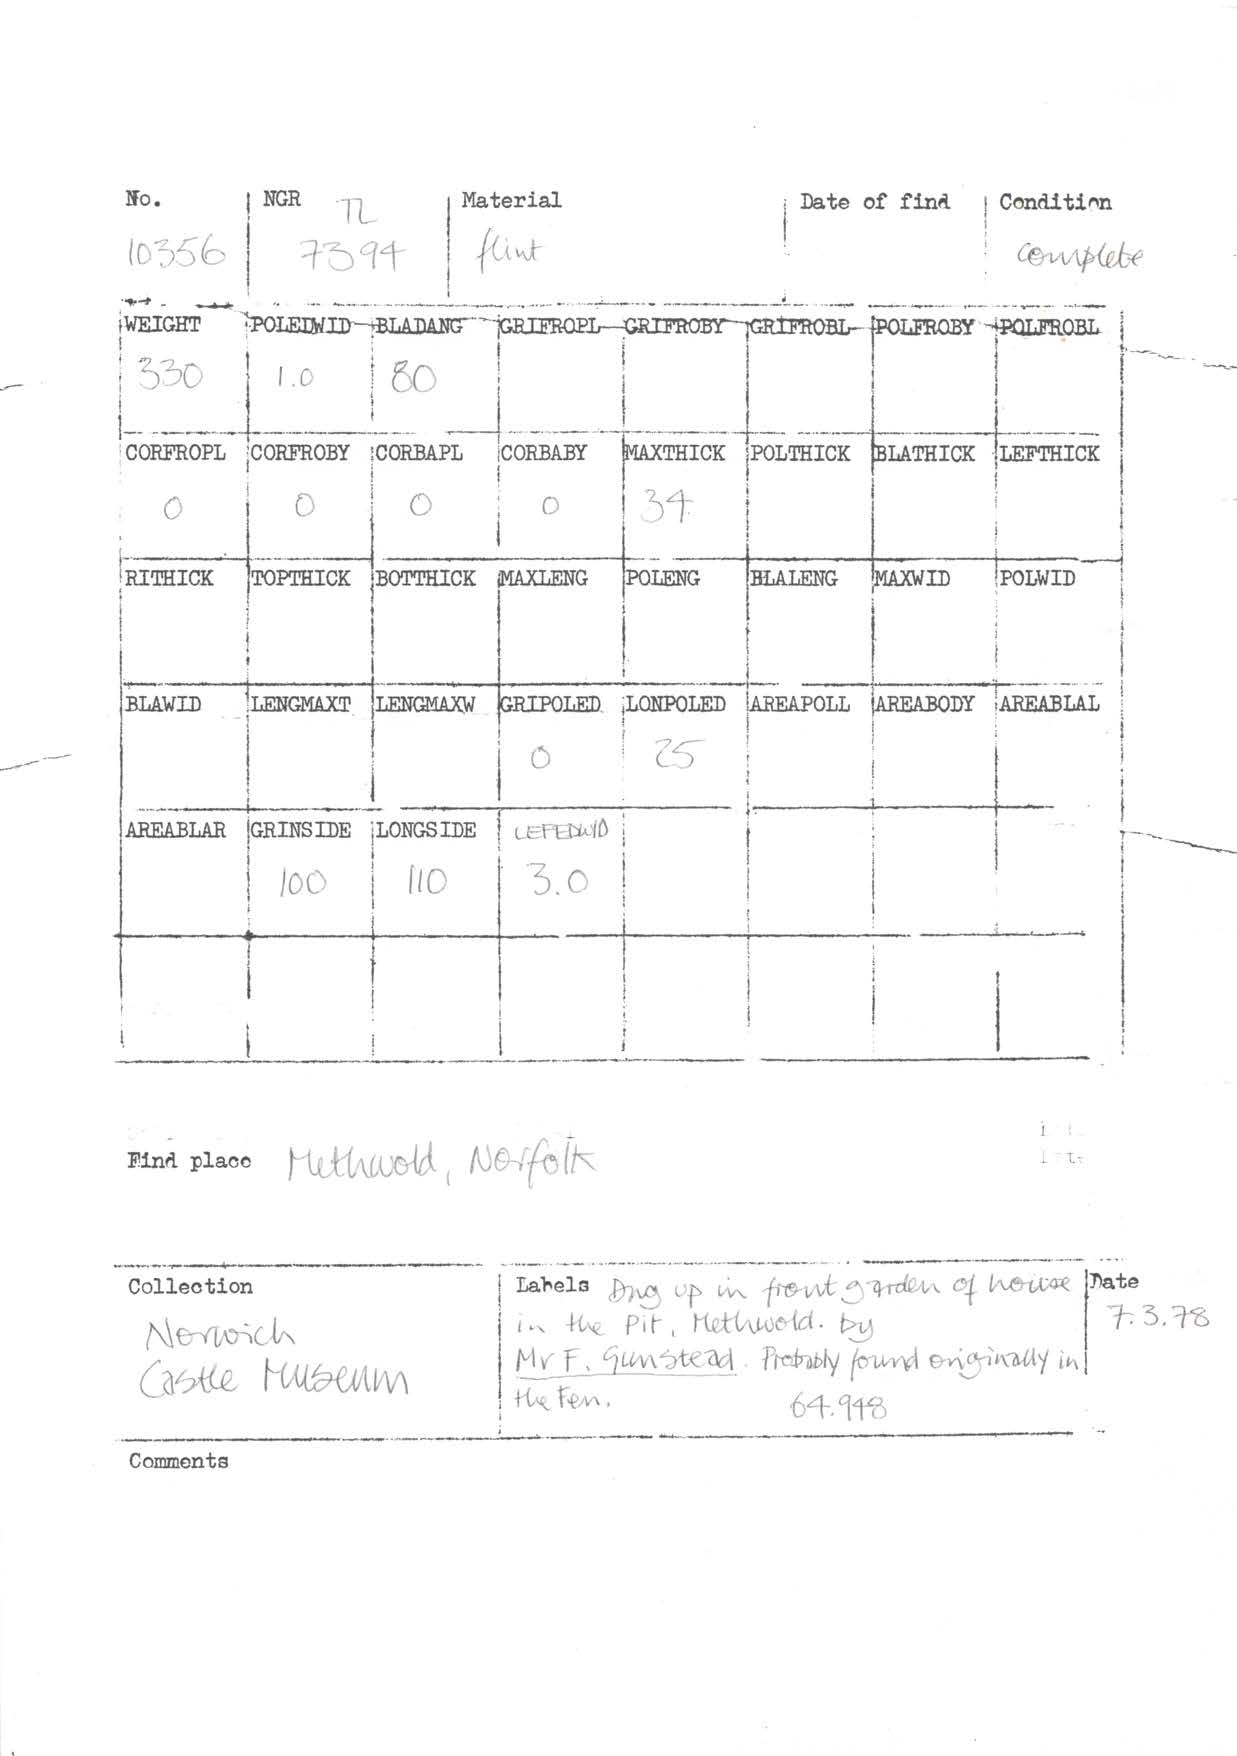 No. NGR Material Date of find Condition
10356 TL 7394 flint complete
WEIGHT POLEDWID BLADANG GRIFROPL GRIFROBY GRIFROBL POLFROBY POLFROBL
330 1.0 80
CORFROPL CORFROBY CORBAPL CORBABY MAXTHICK POLTHICK BLATHICK LEFTHICK
0 0 0 0 34
RITHICK TOPTHICK BOTTHICK MAXLENG POLENG BLALENG MAXWID POLWID
BLAWID LENGMAXT LENGMAXW GRIPOLED LONPOLED AREAPOLL AREABODY AREABLAL
0 25
AREABLAR GRINSIDE LONGSIDE LEFEDWID
100 110 3.0
Find place Methwold, Norfolk
Collection Labels Dug up in front garden of house Date
Norwich in the Pit, Methwold. by 7.3.78
Castle Museum Mr F. Gunstead. Probably found originally in
the Fen. 64.948
Comments